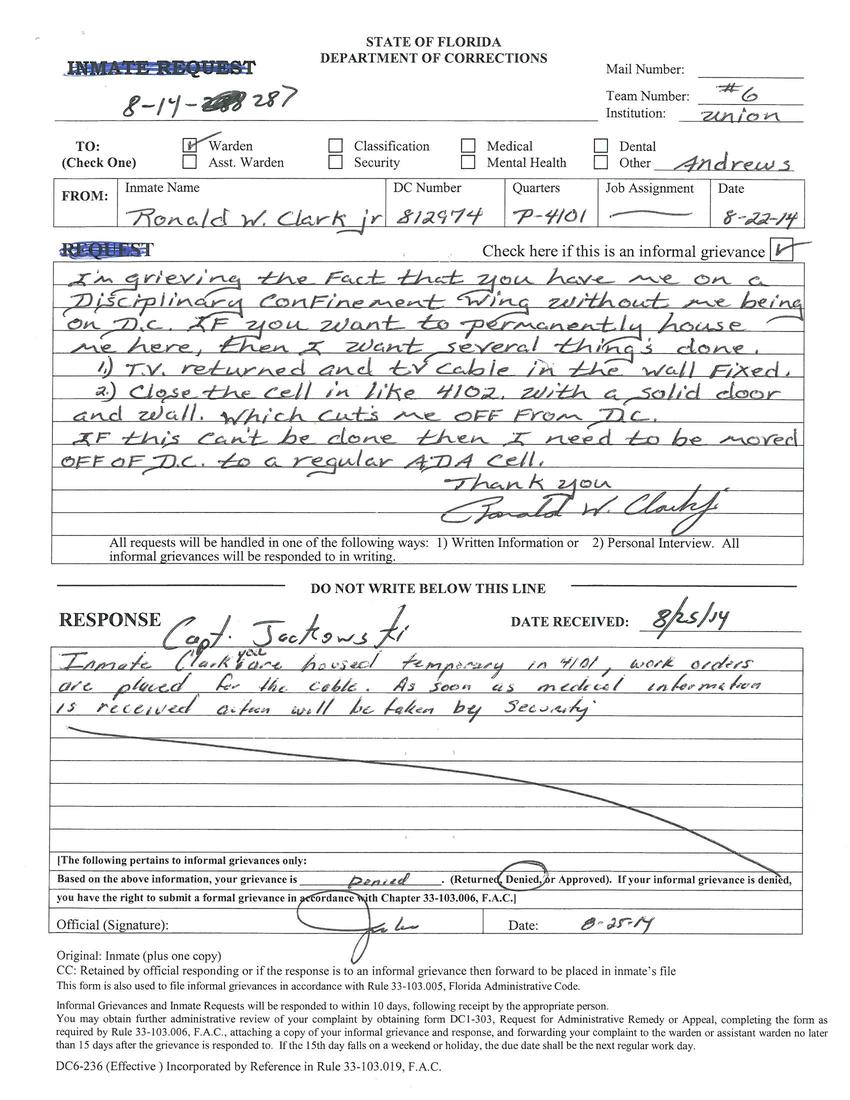 STATE OF FLORIDA
DEPARTMENT OF CORRECTIONS
INMATE REQUEST
8-14- 287
Mail Number:
Team Number: #6
Institution: Union
TO: Warden Classification Medical Dental
(Check One) Asst. Warden Security Mental Health Other Andrews
FROM: Inmate Name DC Number Quarters Job Assignment Date
Ronald W. Clark jr 812974 P-4101 8-22-14
REQUEST Check here if this is an informal grievance
I'm grieving the Fact that you have me on a
Disciplinary Confinement wing without me being
on D.C. IF you want to permanently house
me here, then I want several thing's done.
1.) T.V. returned and tv cable in the wall Fixed.
2.) Close the cell in like 4102. with a solid door
and wall. Which cut's me OFF From D.C.
IF this can't be done then I need to be moved
OFF OF D.C. to a regular ADA Cell.
Thank you
Ronald W. Clark jr
All requests will be handled in one of the following ways: 1) Written Information or 2) Personal Interview. All
informal grievances will be responded to in writing.
DO NOT WRITE BELOW THIS LINE
RESPONSE Capt. Jackowski DATE RECEIVED: 8/25/14
Inmate Clark you are housed temporary in 4101, work orders
are placed for the cable. As soon as medical information
is received action will be taken by Security
[The following pertains to informal grievances only:
Based on the above information, your grievance is Denied. (Returned, Denied, or Approved). If your informal grievance is denied,
you have the right to submit a formal grievance in accordance with Chapter 33-103.006, F.A.C.]
Official (Signature): Date: 8-25-14
Original: Inmate (plus one copy)
CC: Retained by official responding or if the response is to an informal grievance then forward to be placed in inmate's file
This form is also used to file informal grievances in accordance with Rule 33-103.005, Florida Administrative Code.
Informal Grievances and Inmate Requests will be responded to within 10 days, following receipt by the appropriate person.
You may obtain further administrative review of your complaint by obtaining form DC1-303, Request for Administrative Remedy or Appeal, completing the form as
required by Rule 33-103.006, F.A.C., attaching a copy of your informal grievance and response, and forwarding your complaint to the warden or assistant warden no later
than 15 days after the grievance is responded to. If the 15th day falls on a weekend or holiday, the due date shall be the next regular work day.
DC6-236 (Effective ) Incorporated by Reference in Rule 33-103.019, F.A.C.